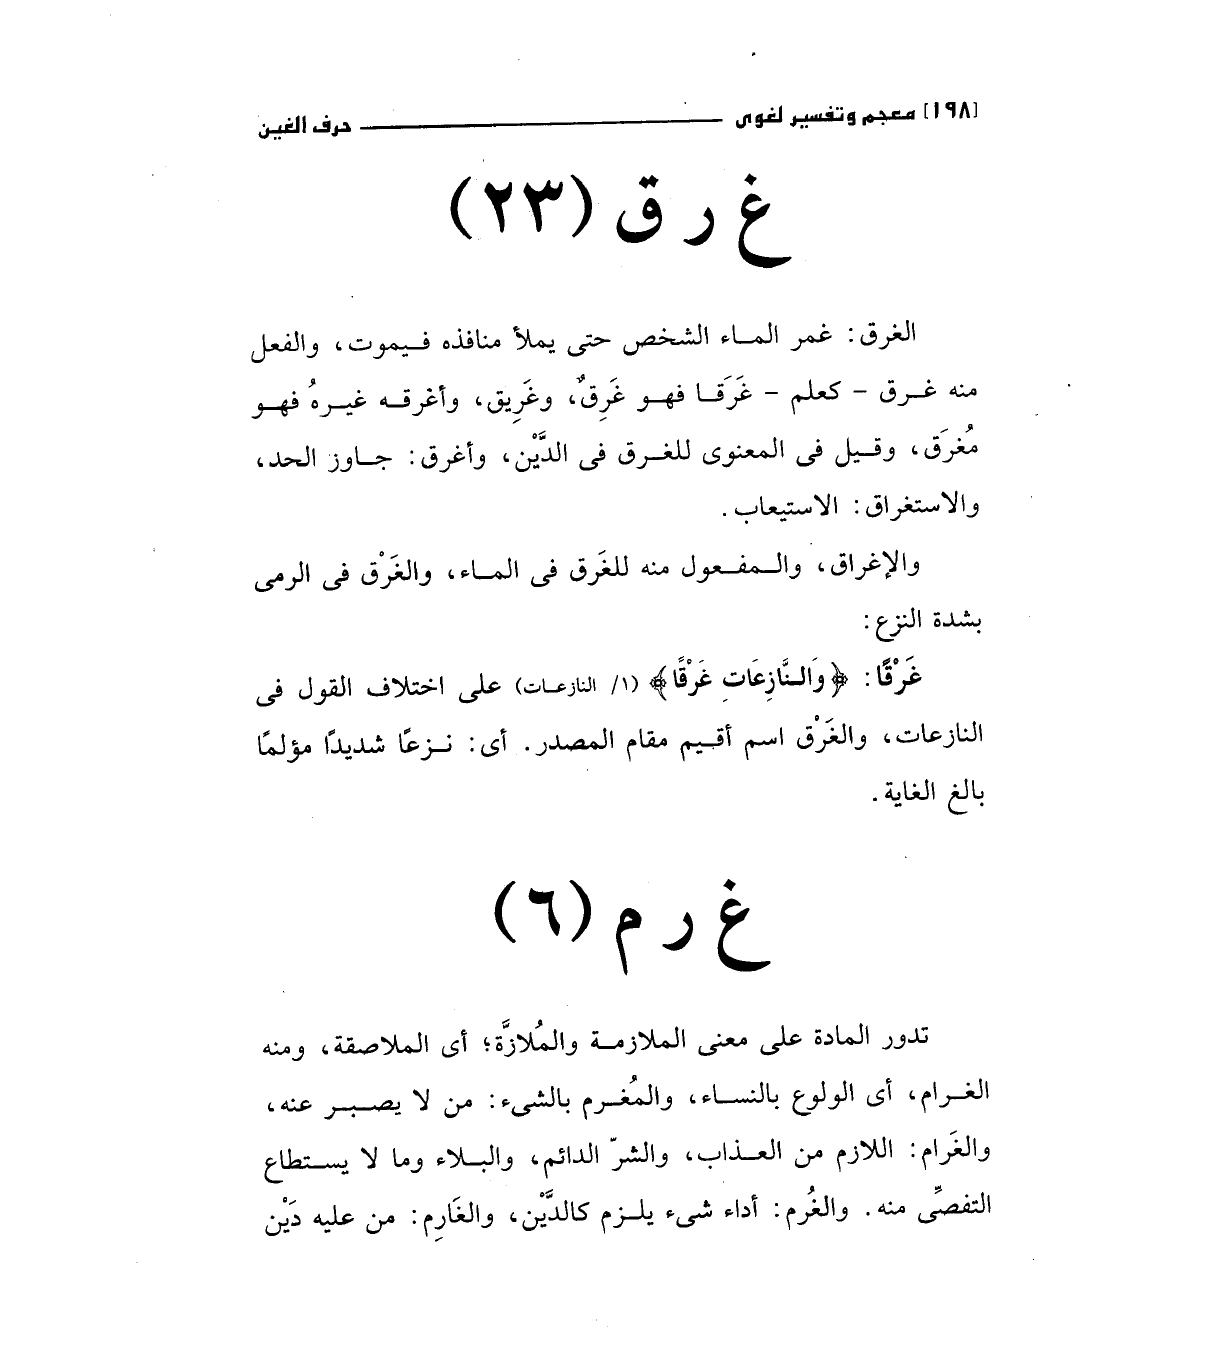 [١٩٨] معجم وتفسير لغوى ـــــــــ حرف الغين
غ ر ق (٢٣)
الغرق: غمر الماء الشخص حتى يملأ منافذه فيموت، والفعل
منه غرق - كعلم - غَرَقا فهو غَرِقٌ، وغَرِيق، وأغرقه غيرهُ فهو
مُغرَق، وقيل فى المعنوى للغرق فى الدَّيْن، وأغرق: جاوز الحد،
والاستغراق: الاستيعاب.
والإغراق، والمفعول منه للغَرق فى الماء، والغَرْق فى الرمى
بشدة النزع:
غَرْقًا: ﴿وَالنَّازِعَاتِ غَرْقًا﴾ (١/ النازعات) على اختلاف القول فى
النازعات، والغَرْق اسم أقيم مقام المصدر. أى: نزعًا شديدًا مؤلمًا
بالغ الغاية.
غ ر م (٦)
تدور المادة على معنى الملازمة والمُلازَّة؛ أى الملاصقة، ومنه
الغرام، أى الولوع بالنساء، والمُغرم بالشىء: من لا يصبر عنه،
والغَرام: اللازم من العذاب، والشرّ الدائم، والبلاء وما لا يستطاع
التفصِّى منه. والغُرم: أداء شىء يلزم كالدَّيْن، والغَارِم: من عليه دَيْن